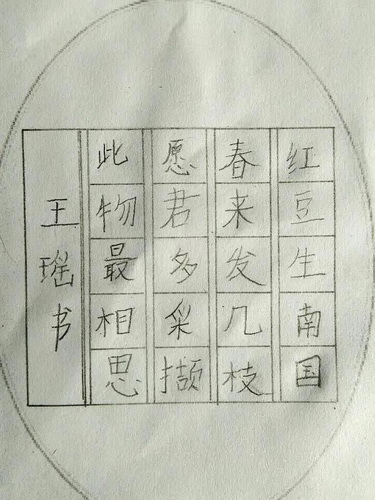 红豆生南国
春来发几枝
愿君多采撷
此物最相思
王瑶书